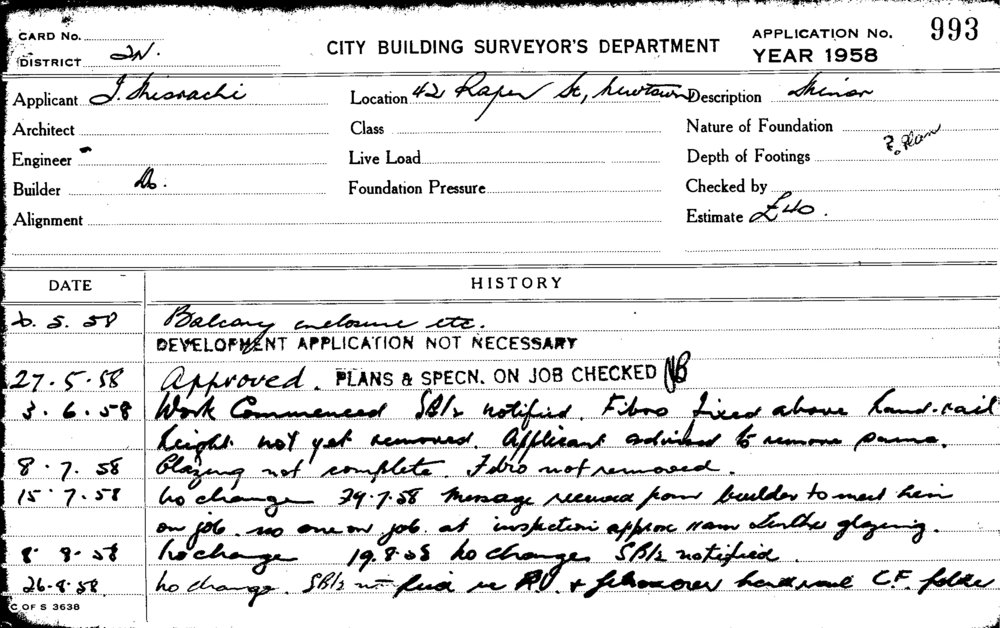 CARD No.
DISTRICT 2N.
CITY BUILDING SURVEYOR'S DEPARTMENT
APPLICATION No. 993
YEAR 1958
Applicant J. Misrachi Location 42 Raper St, Newtown Description Minor
Architect Class Nature of Foundation
Engineer Live Load Depth of Footings F. Plan
Builder Do. Foundation Pressure Checked by
Alignment Estimate £40.
DATE HISTORY
6. 5. 58 Balcony enclosure etc.
DEVELOPMENT APPLICATION NOT NECESSARY
27. 5. 58 Approved. PLANS & SPECN. ON JOB CHECKED
3. 6. 58 Work Commenced notified. Fibro fixed above hand-rail
height not yet removed. Applicant advised to remove same.
8. 7. 58 Glazing not complete. Fibro not removed.
15. 7. 58 No change 29.7.58 Message received from builder to meet him
on job. no one on job at inspection approx glazing.
8. 8. 58 No change 19.8.58 No change notified.
26.8.58 No change. re C.F.
C OF S 3638